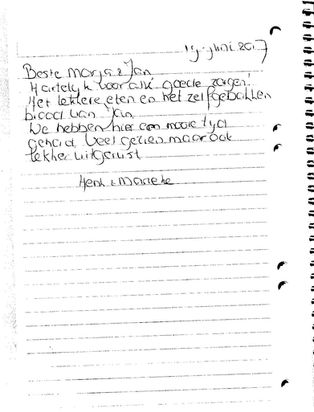 19 juni 2017
Beste Marja & Jan
Hartelijk voor alle goede zorgen!
Het lekkere eten en het zelfgebakken
brood van Jan
We hebben hier een mooie tijd
gehad. Veel gezien maar ook
lekker uitgerust
Henk & Marieke